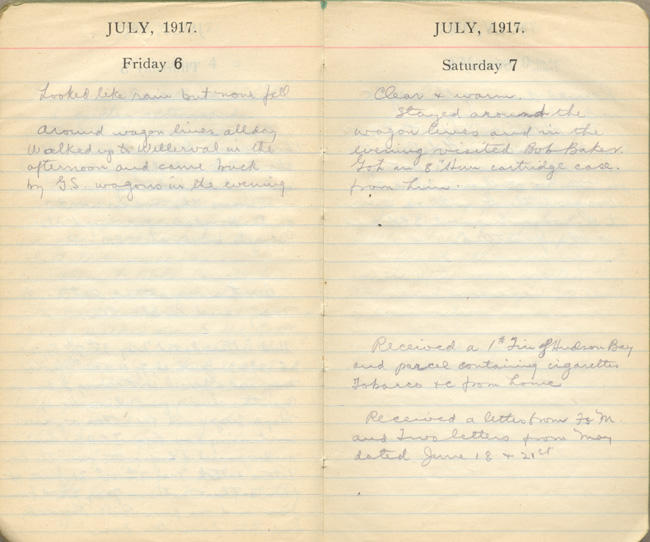 JULY, 1917.
Friday 6
Looked like rain but none fell
Around wagon lines all day
Walked up to Willerval in the
afternoon and came back
by G.S. wagons in the evening
JULY, 1917.
Saturday 7
Clear & warm.
Stayed around the
wagon lines and in the
evening visited Bob Baker.
Got an 8" How cartridge case.
from him.
Received a 1# Tin of Hudson Bay
and parcel containing cigarettes
Tobacco &c from home
Received a letter from F & M.
and Two letters from May
dated June 18 & 21st